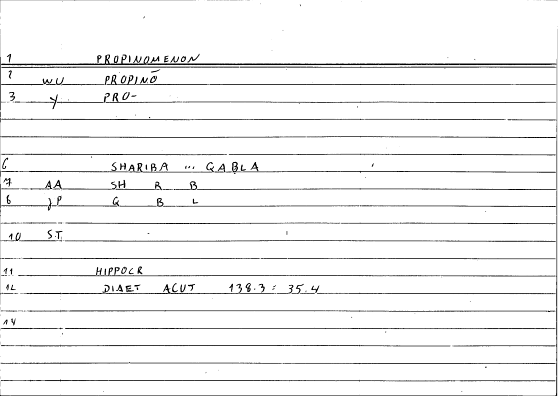 1 PROPINOMENON
2 WU PROPINŌ
3 y PRO-
6 SHARIBA ... QABLA
7 AA SH R B
8 JP Q B L
10 S.T.
11 HIPPOCR
12 DIAET ACUT 138.3 : 35.4
14